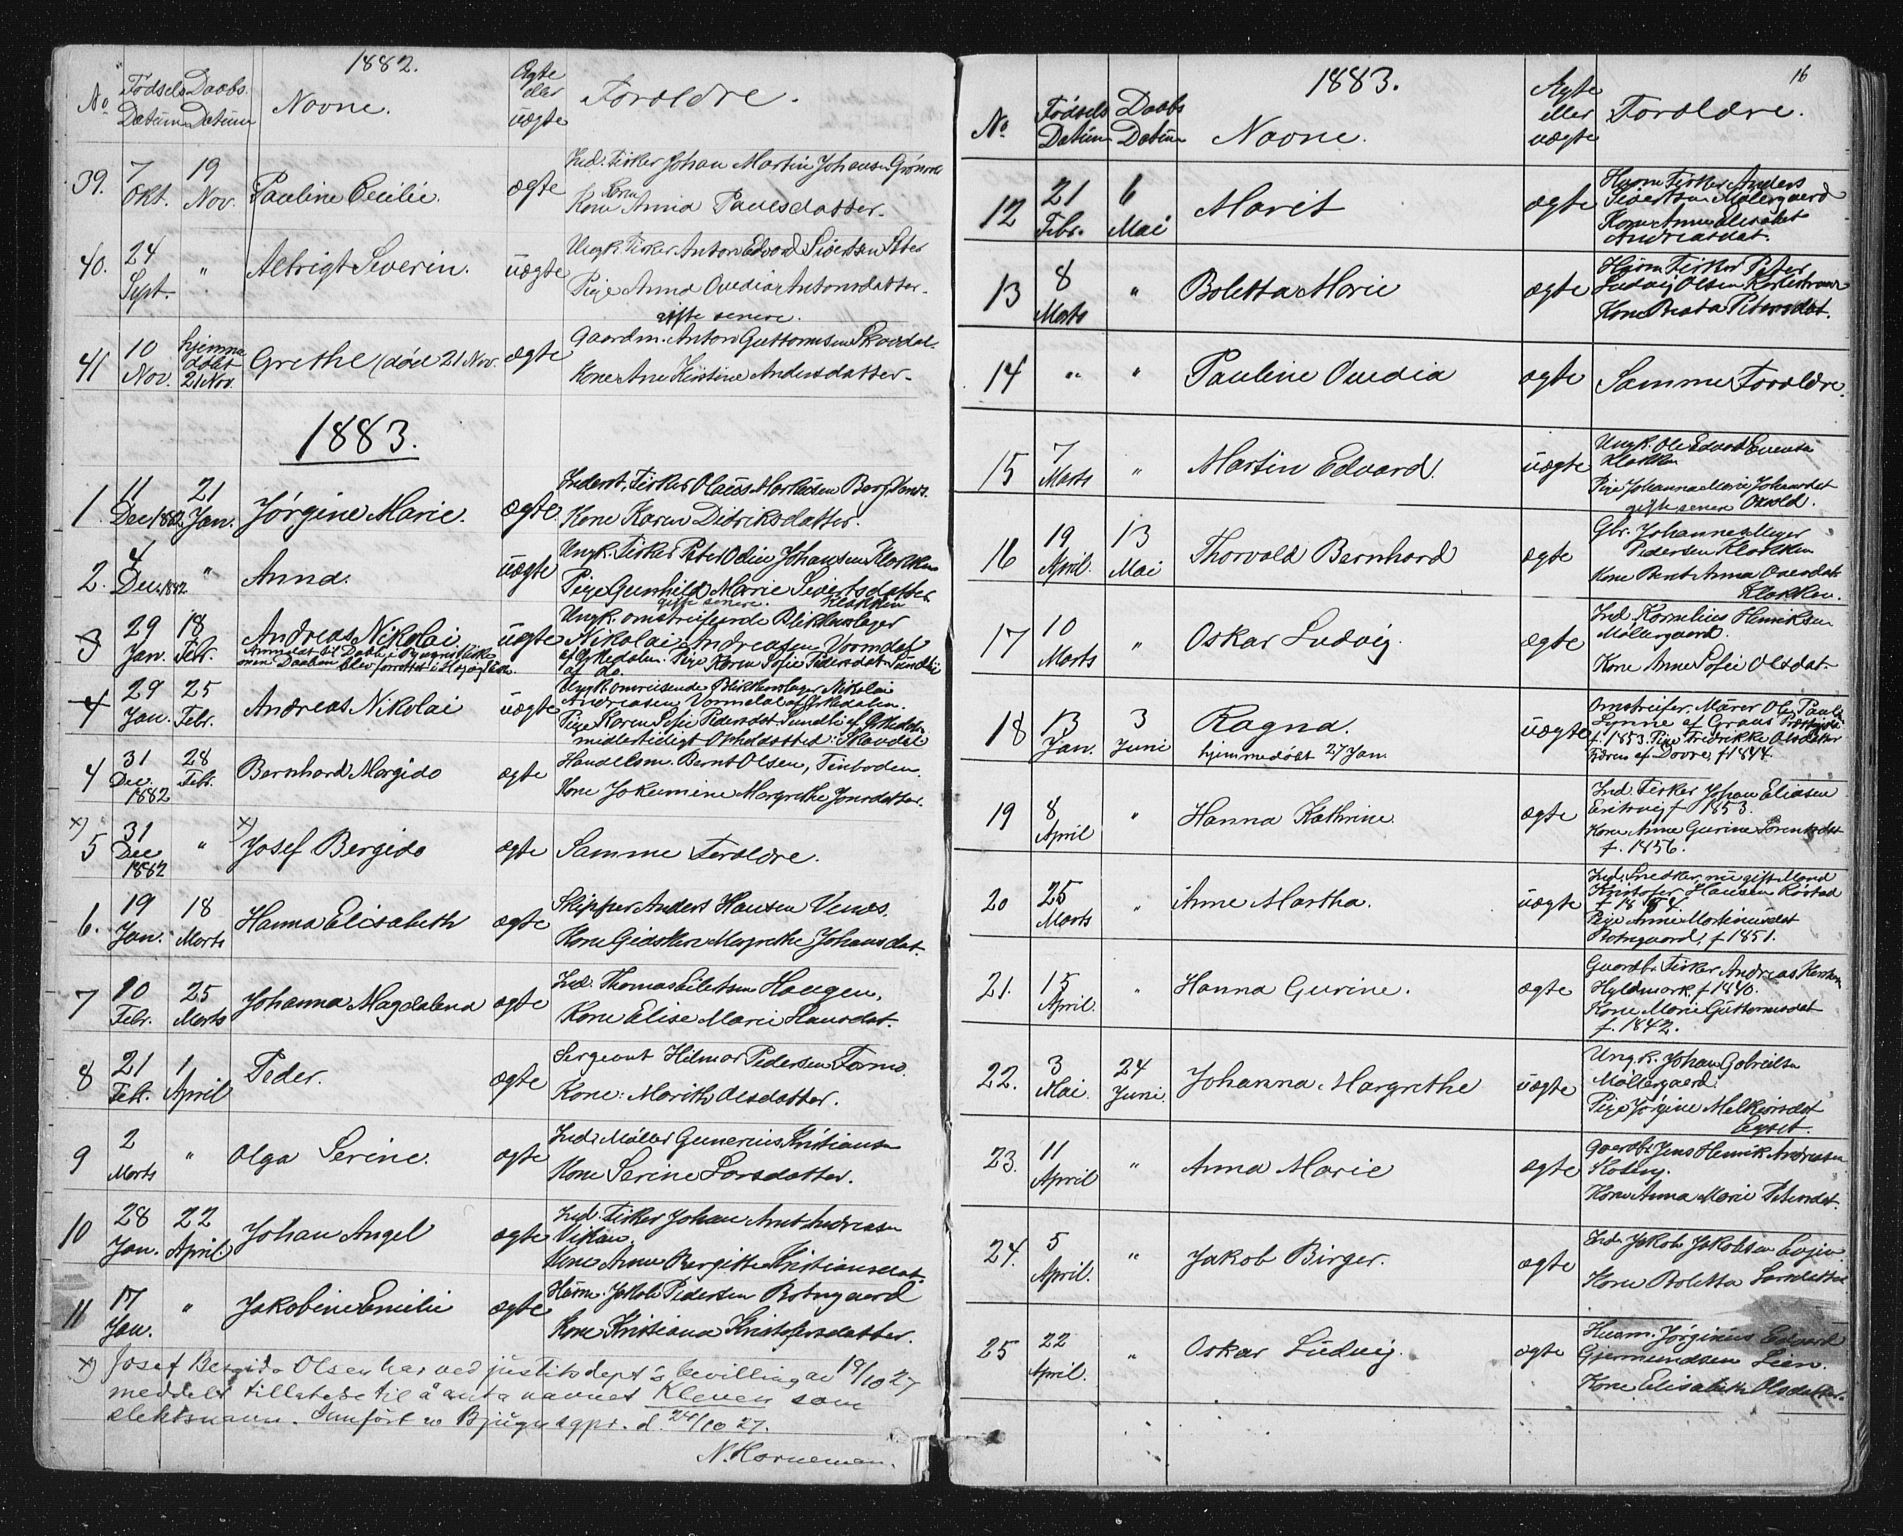 1882.
No Fødsels Datum Daabs Datum Navne. Ægte eller uægte Forældre.
39. 7 Okt. 19 Nov. Pauline Cecilie. ægte Ind. Fisker Johan Martin Johansen
Kone Anna Paulsdatter.
40. 24 Sept. " Albrigt Severin. uægte Ungk. Fisker Anton Edvard Sivertsen
Pige Anna Ovedia Antonsdatter.
gifte senere.
41 10 Nov. hjemmedøbt 21 Nov. Grethe (død 21 Nov. ægte Gaardm. Anton Guttormsen Skavdal.
Kone Ane Kirstine Andersdatter.
1883.
1 11 Dec 1882 21 Jan. Jørgine Marie. ægte Inderst, Fisker Olaus Markusen
Kone Karen Didriksdatter.
2. 4 Dec. 1882 " Anna. uægte Ungk. Fisker Peter Odin Johansen Klakken
Pige Gunhild Marie Sivertsdatter
gifte senere. Klakken
3 29 Jan. 18 Febr. Andreas Nikolai uægte Ungk. omstreifende Blikkenslager
Nikolai Andreasen Vormdal
af Ørkedalen. Pige Karen Sofie Pedersdat. Sundli
af do.
4 29 Jan. 25 Febr. Andreas Nikolai uægte Ungk. omreisende Blikkenslager Nikolai
Andreasen Vormdal af Ørkedalen.
Pige Karen Sofie Pedersdat Sundli af Ørkedalen
midlertidigt Opholdssted: Skavdal
4 31 Dec. 1882 28 Febr. Bernhard Margido ægte Handelsm. Bernt Olsen, Tinboden.
Kone Jokumine Margrethe Jonsdatter.
x) 5 31 Dec 1882 " x) Josef Bergido ægte Samme Forældre.
6. 19 Jan. 18 Marts Hanna Elisabeth ægte Skipper Anders Hansen Venes.
Kone Gidsken Margrethe Johansdat.
7 10 Febr. 25 Marts Johanna Magdalena ægte Ind. Thomas Eilertsen Haugen.
Kone Elise Marie Hansdat.
8 21 Febr. 1 April Peder. ægte Sergeant Hilmar Pedersen
Kone: Marith Olsdatter.
9 2 Marts " Olga Serine. ægte Ind. Møller Gunerius Kristiansen
Kone Serine Larsdatter.
10 28 Jan. 22 April Johan Angel ægte Ind. Fisker Johan Arnt Andreasen
Vikan.
Kone Anne Bergitte Kristiansdat.
11 17 Jan. " Jakobine Emilie ægte Husm. Jakob Pedersen Botngaard
Kone Kristiana Kristofersdatter.
x) Josef Bergido Olsen har ved justitsdept's bevilling av 19/10 27
meddelt tillatelse til å anta navnet Kleven som
slektsnavn. Innført av Bjugn sgpr. d. 24/10 27.
N. Horneman.
16
1883.
No Fødsels Datum Daabs Datum Navne. Ægte eller uægte Forældre.
12 21 Febr. 6 Mai Marit ægte Husm Fisker Anders
Sivertsen Møllergaard
Kone Anne Elisabet
Andreasdat.
13 8 Marts " Boletta Marie ægte Husm Fisker Peter
Ludvig Olsen
Kone Beata Petersdat.
14 " " Pauline Ovedia ægte Samme Forældre.
15 7 Marts " Martin Edvard. uægte Ungk. Ole Edvard Evensen
Klakken
Pige Johanna Marie Johansdat
gifte senere
16 19 April. 13 Mai Thorvald Bernhard ægte Gbr. Johannes Meyer
Pedersen Klakken
Kone Berit Anna
Klakken.
17 10 Marts " Oskar Ludvig. ægte Ind Kornelius Henriksen
Møllergaard.
Kone Anne Sofie Olsdat.
18 13 Jan. 3 Juni Ragna.
hjemmedøbt 27 Jan. uægte Omstreifer, Murer Ole Paulsen
Lynne af Grans Præstegjeld
f. 1853. Pige Fredrikke Olsdatter
af Dovre, f 1844.
19 8 April " Hanna Kathrine. ægte Ind Fisker Johan Eliasen
Eriksvig f 1853.
Kone Anne Gurine Lorentsdat
f. 1856.
20 25 Marts " Anne Martha. uægte Ind. Snedker, nu gift Mand
Kristofer Hansen Røstad
Pige Anne Martinusdat
Botngaard, f 1851.
21. 15 April. " Hanna Gurine. ægte Gaardbr. Fisker Andreas
Hyldmark, f 1840.
Kone Marie Guttormsdat
f. 1842.
22. 3 Mai. 24 Juni. Johanna Margrethe uægte Ungk. Johan Gabrielsen
Møllergaard.
Pige Jørgine Melkiorsdat
23. 11 April " Anna Marie ægte Gaardbr. Jens Henrik Andreasen
Koting.
Kone Anna Marie Petersdat.
24. 5 April. " Jakob Birger. ægte Ind. Jakob Jakobsen
Kone Boletta Larsdatter
25 22 April. " Oskar Ludvig. ægte Husm. Jørginus Edvard
Gjermundsen Lien.
Kone Elisabeth Olsdatter.